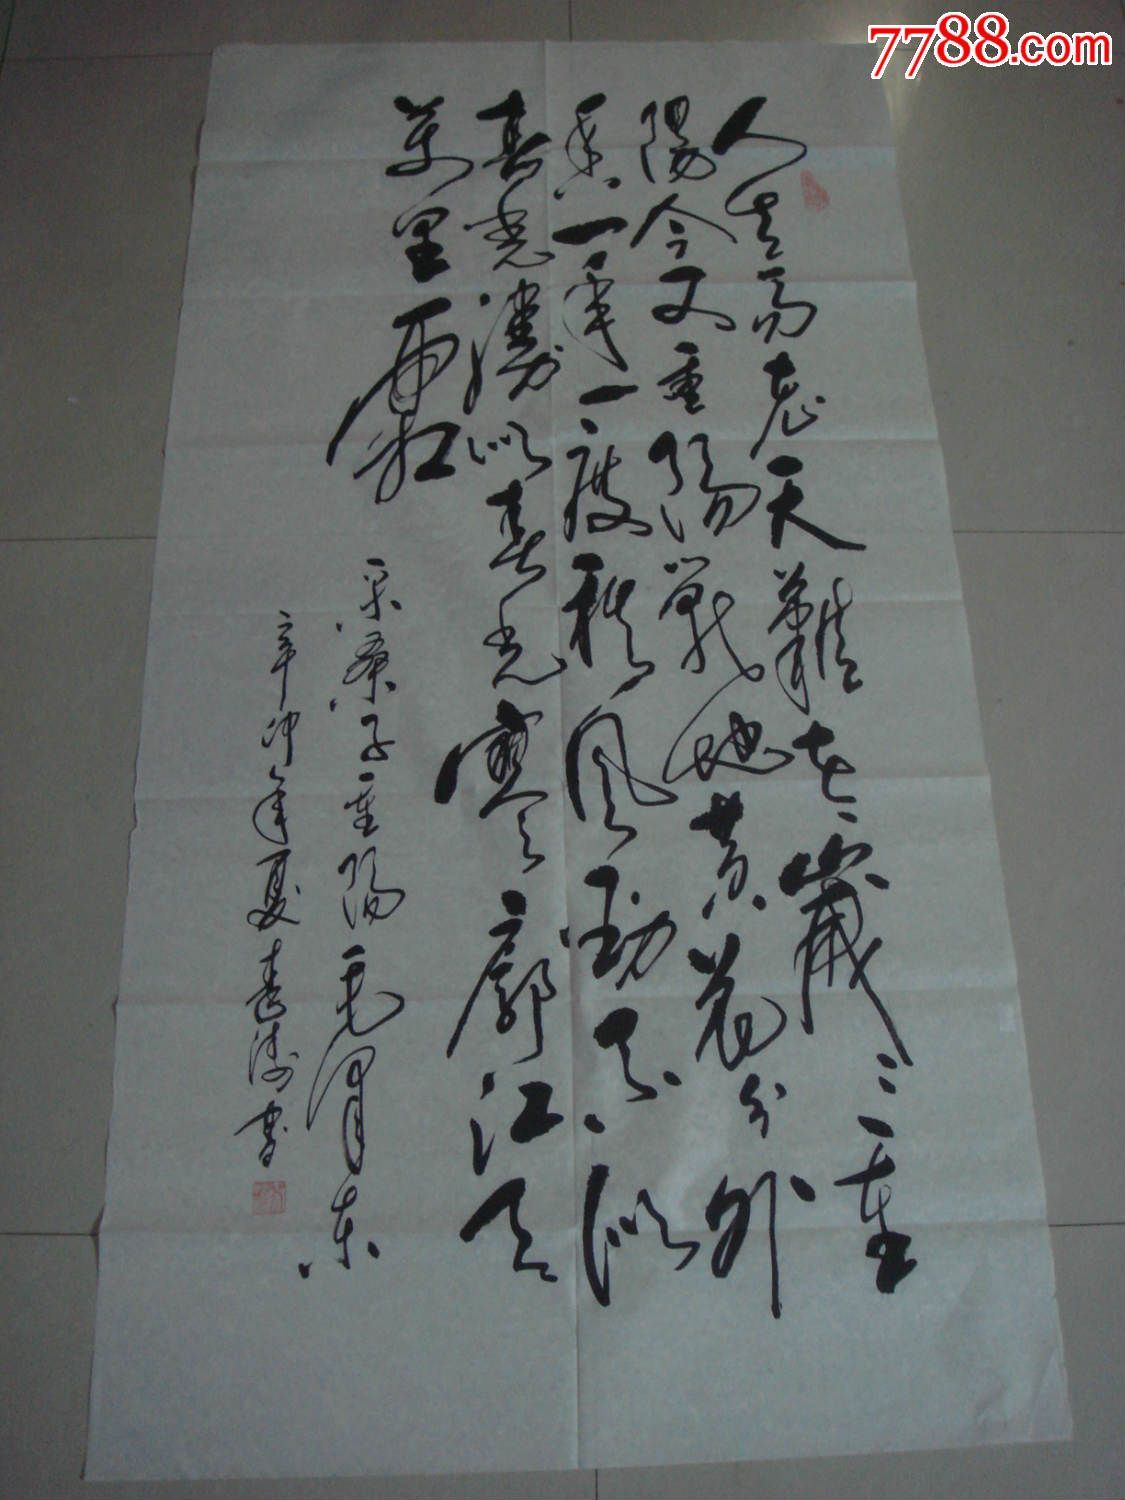 人生易老天難老歲〻重
陽今又重陽戰地黄花分外
香一年一度秋風勁不似
春光勝似春光寥廓江天
萬里霜
采桑子重陽毛澤東
辛卯年夏濤書
7788.com